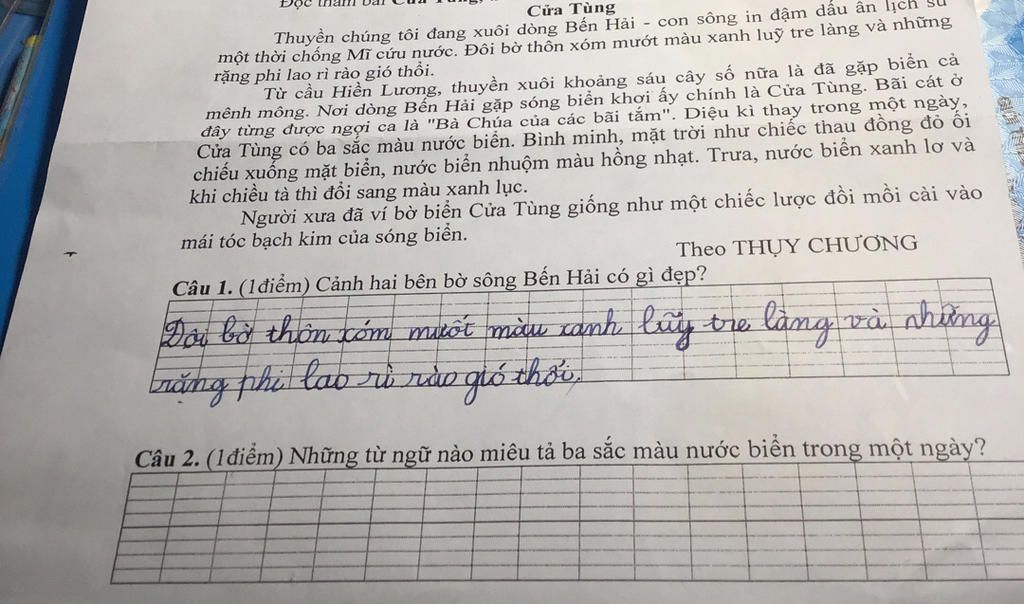 Đọc thầm bài Cửa Tùng,
Cửa Tùng
Thuyền chúng tôi đang xuôi dòng Bến Hải - con sông in đậm dấu ấn lịch sử
một thời chống Mĩ cứu nước. Đôi bờ thôn xóm mướt màu xanh luỹ tre làng và những
rặng phi lao rì rào gió thổi.
Từ cầu Hiền Lương, thuyền xuôi khoảng sáu cây số nữa là đã gặp biển cả
mênh mông. Nơi dòng Bến Hải gặp sóng biển khơi ấy chính là Cửa Tùng. Bãi cát ở
đây từng được ngợi ca là "Bà Chúa của các bãi tắm". Diệu kì thay trong một ngày,
Cửa Tùng có ba sắc màu nước biển. Bình minh, mặt trời như chiếc thau đồng đỏ ối
chiếu xuống mặt biển, nước biển nhuộm màu hồng nhạt. Trưa, nước biển xanh lơ và
khi chiều tà thì đổi sang màu xanh lục.
Người xưa đã ví bờ biển Cửa Tùng giống như một chiếc lược đồi mồi cài vào
mái tóc bạch kim của sóng biển.
Theo THỤY CHƯƠNG
Câu 1. (1điểm) Cảnh hai bên bờ sông Bến Hải có gì đẹp?
Đôi bờ thôn xóm mướt màu xanh luỹ tre làng và những
rặng phi lao rì rào gió thổi.
Câu 2. (1điểm) Những từ ngữ nào miêu tả ba sắc màu nước biển trong một ngày?